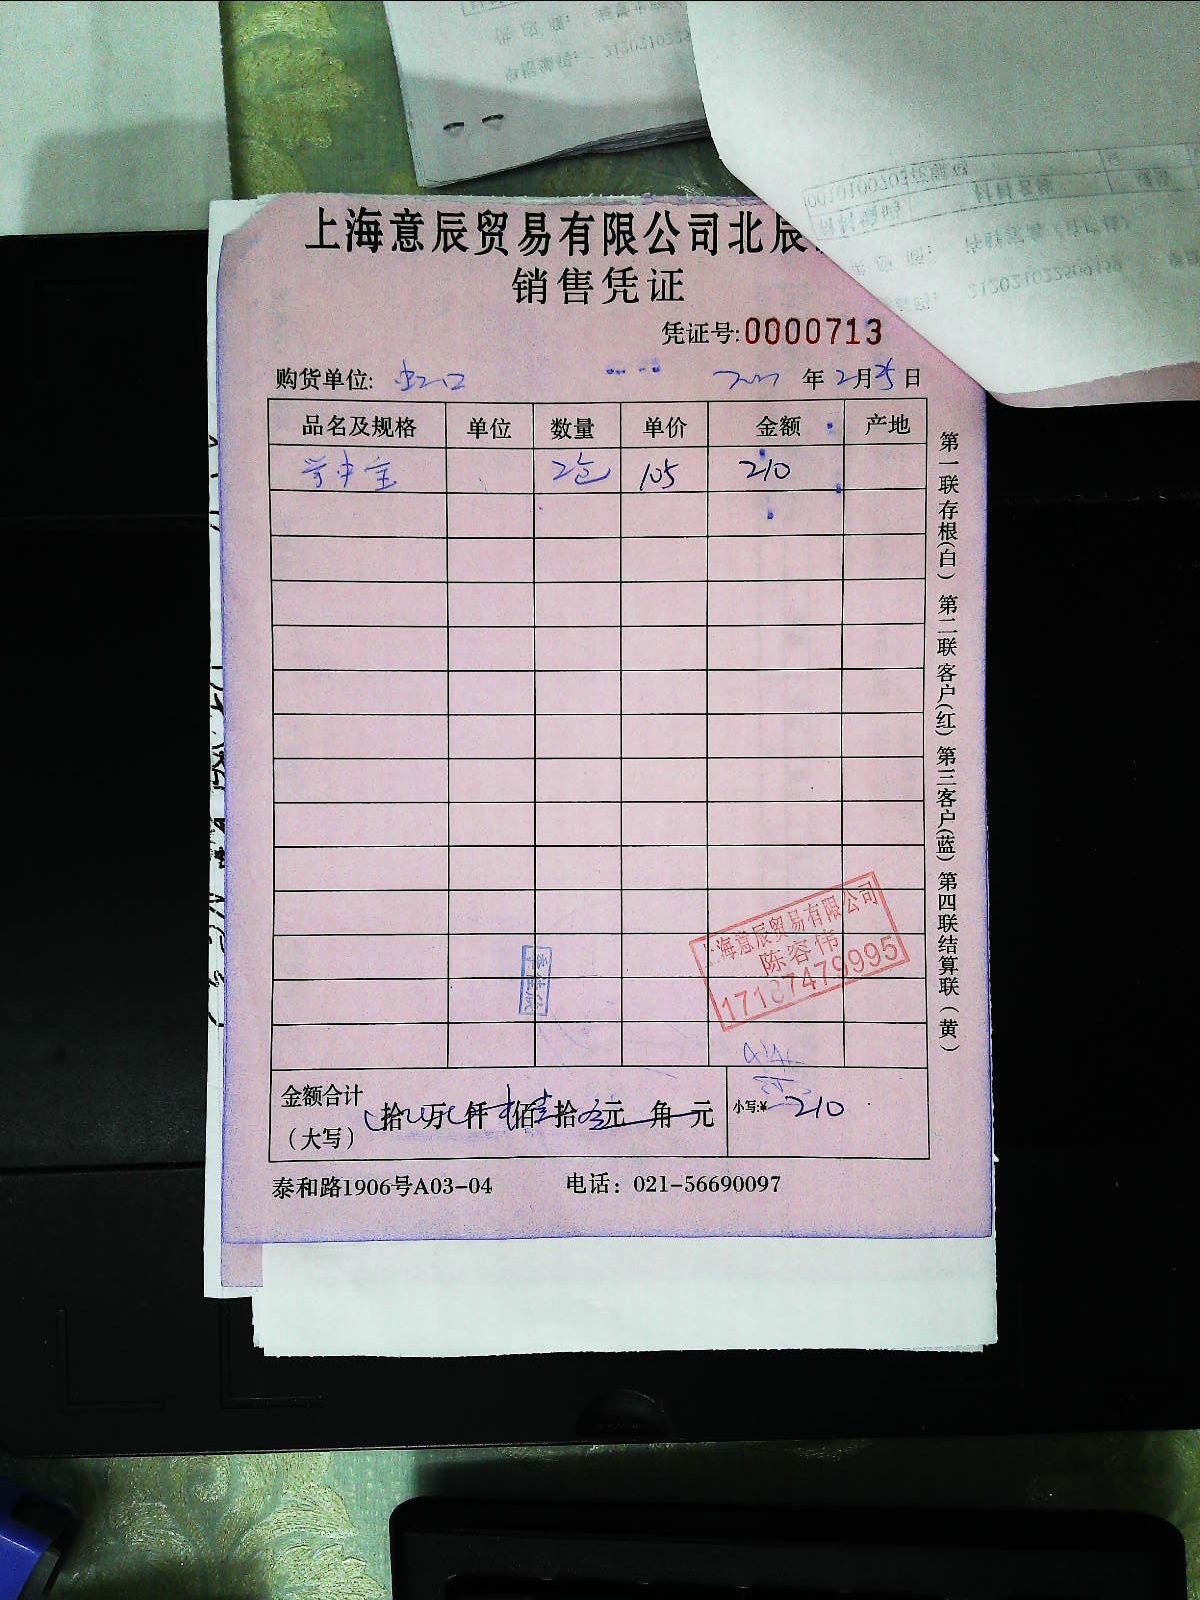 上海意辰贸易有限公司北辰
销售凭证
凭证号:0000713
购货单位: 虹口 年 2月25日
品名及规格 单位 数量 单价 金额 产地
2包 105 210
第一联存根(白) 第二联客户(红) 第三客户(蓝) 第四联结算联(黄)
上海意辰贸易有限公司
陈容伟
17187479995
金额合计
(大写)
拾 万 仟 佰 拾 元 角 元
小写:¥ 210
泰和路1906号A03-04 电话: 021-56690097